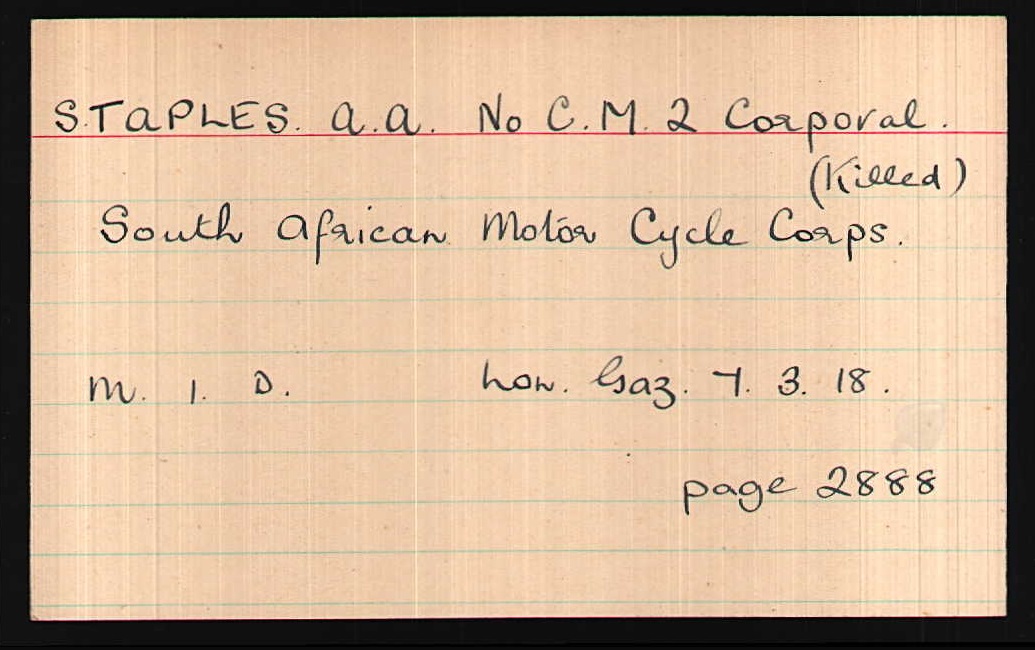 STAPLES. A.A. No C.M. 2 Corporal.
(Killed)
South African Motor Cycle Corps.
M. I. D. Lon. Gaz. 7. 3. 18.
page 2888